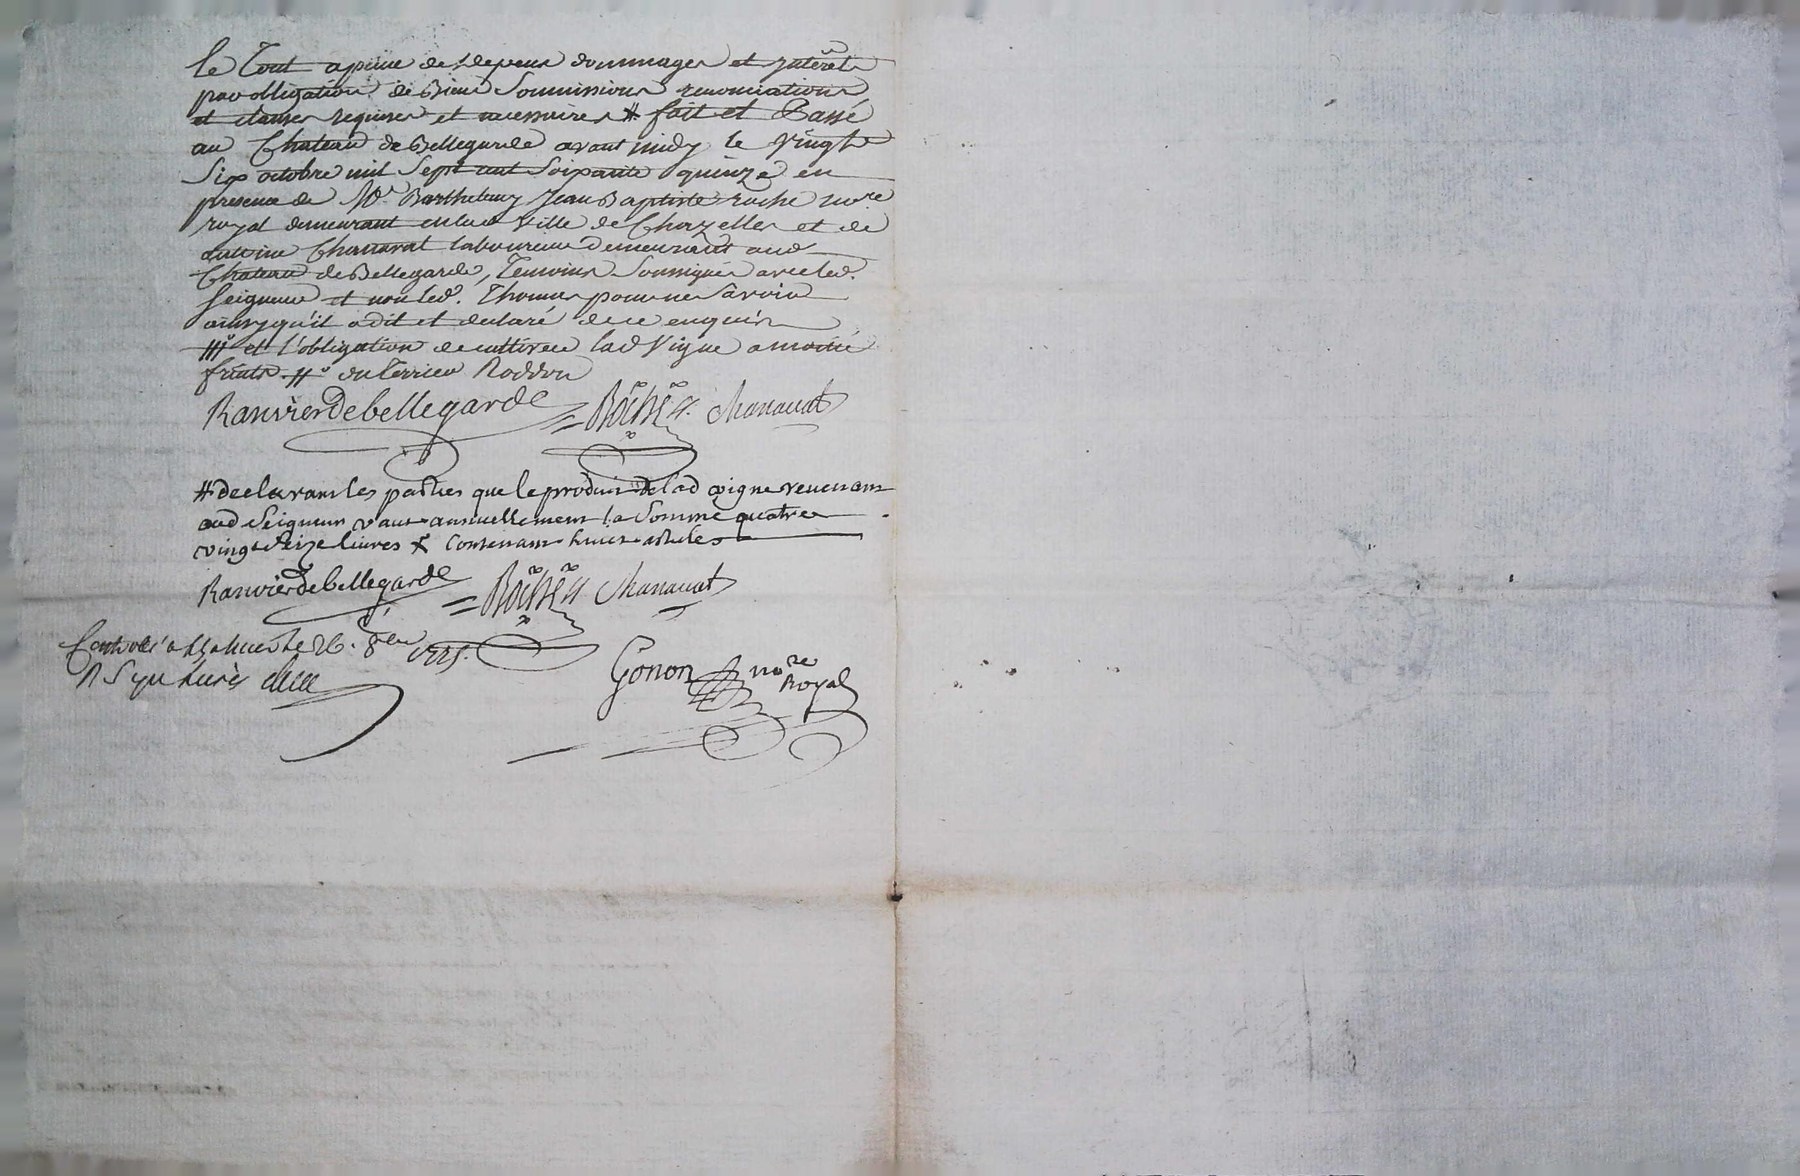 le Tout a peine de depens dommages et jnterets
par obligation de Biens Soumissions renonciations
et clauses requises et necessaires # fait et Passé
au Chateau de Bellegarde avant midy le vingt
Six octobre mil Sept cent Soixante quinze en
presence de Me. Barthelemy Jean Baptiste roche nore
royal demeurant en la ville de Chazelles et de
antoine Chanavat laboureur demeurant aud
Chateau de Bellegarde, Temoins Soussignés avec led.
Seigneur et non led. Thomas pour ne Savoir
ainsy qu'il a dit et declaré de ce enquis
et l'obligation de cultiver lad Vigne a moitié
fruits. #° du Terrier Roddon
Ranvier De bellegarde Roche Chanavat
# declarans les parties que le produit de lad vigne revenant
aud Seigneur vaut annuellement la Somme quatre
vingt Seize livres
Ranvier De bellegarde Roche Chanavat
le 26. 8bre 1775.
Gonon nore
Royal